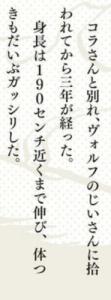 コラさんと別れ、ヴォルフのじいさんに拾
われてから三年が経った。
身長は１９０センチ近くまで伸び、体つ
きもだいぶガッシリした。